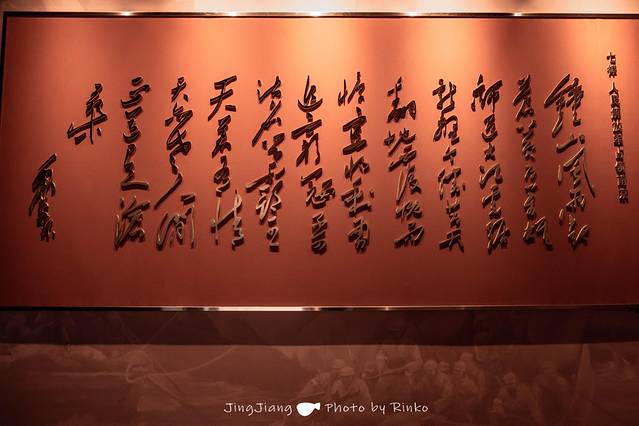 七律 人民解放军占领南京
鍾山風雨起
蒼黃百萬雄
師過大江虎踞
龍盤今勝昔天
翻地覆慨而
慷宜將剩勇
追窮寇不可
沽名學霸王
天若有情
天亦老人間
正道是滄
桑
毛澤東
JingJiang Photo by Rinko